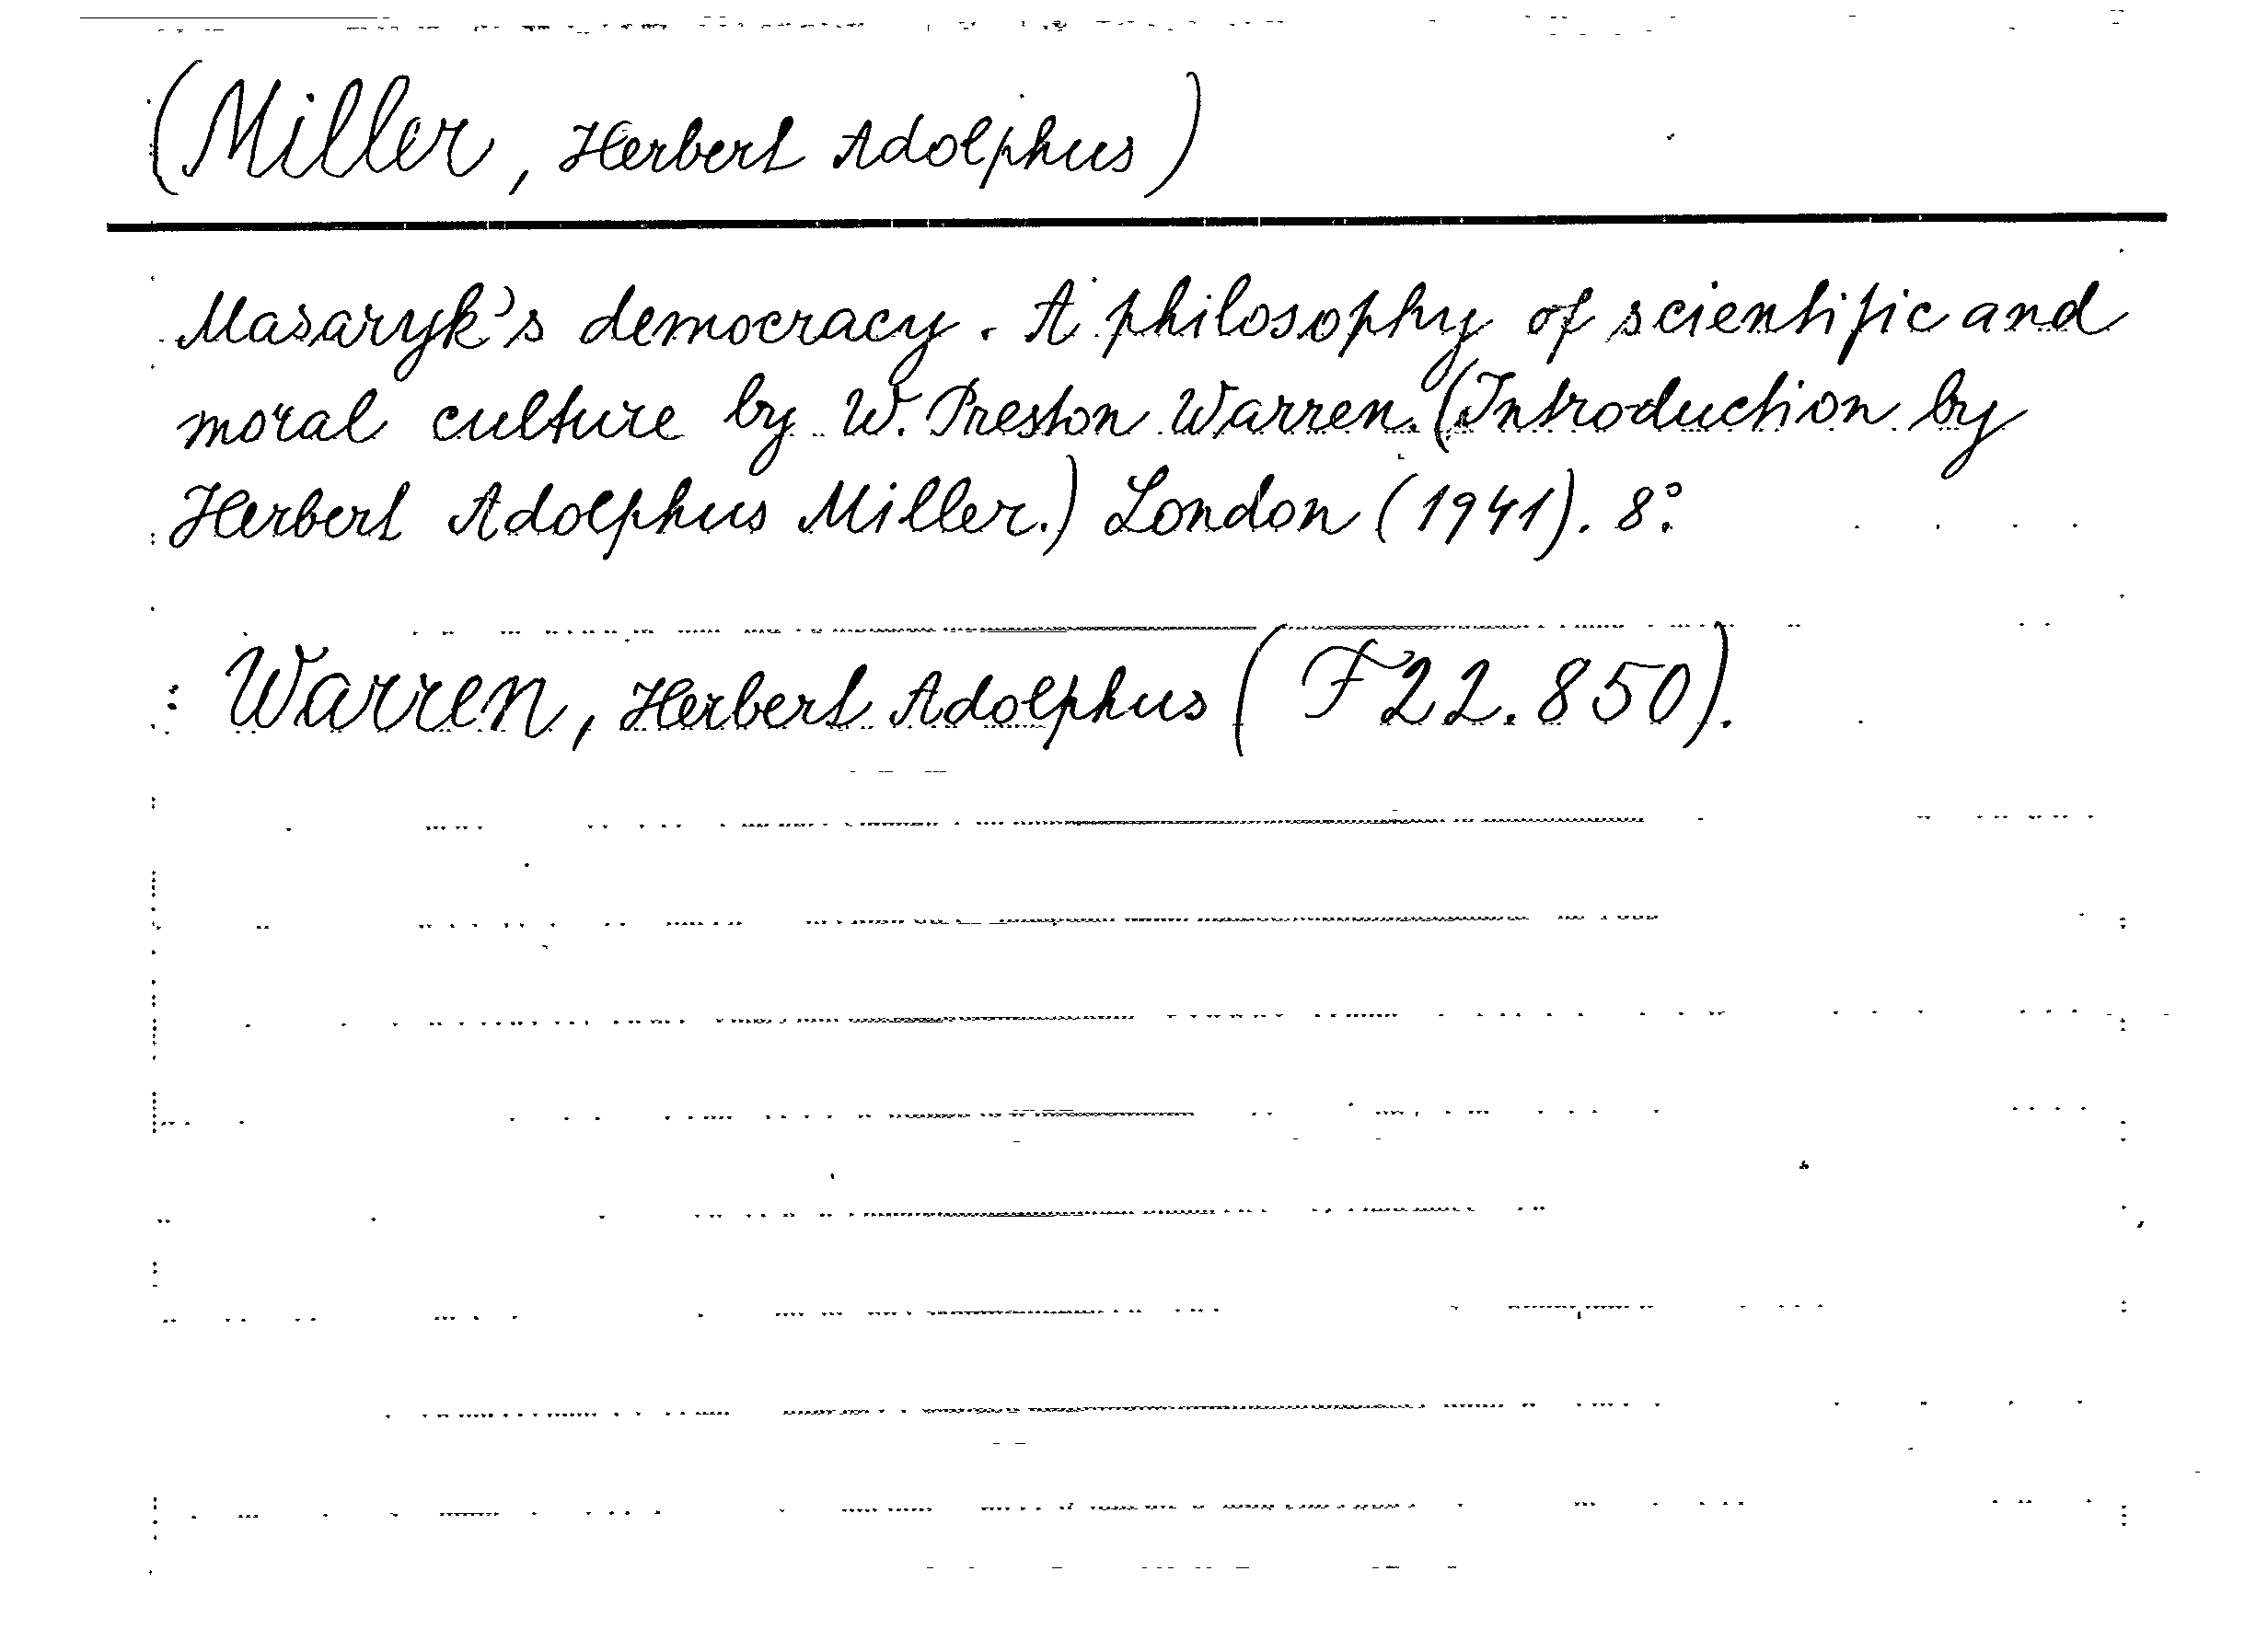 (Miller, Herbert Adolphus)
Masaryk's democracy. A philosophy of scientific and
moral culture by W. Preston Warren. (Introduction by
Herbert Adolphus Miller.) London (1941). 8°.
: Warren, Herbert Adolphus (F 22.850).